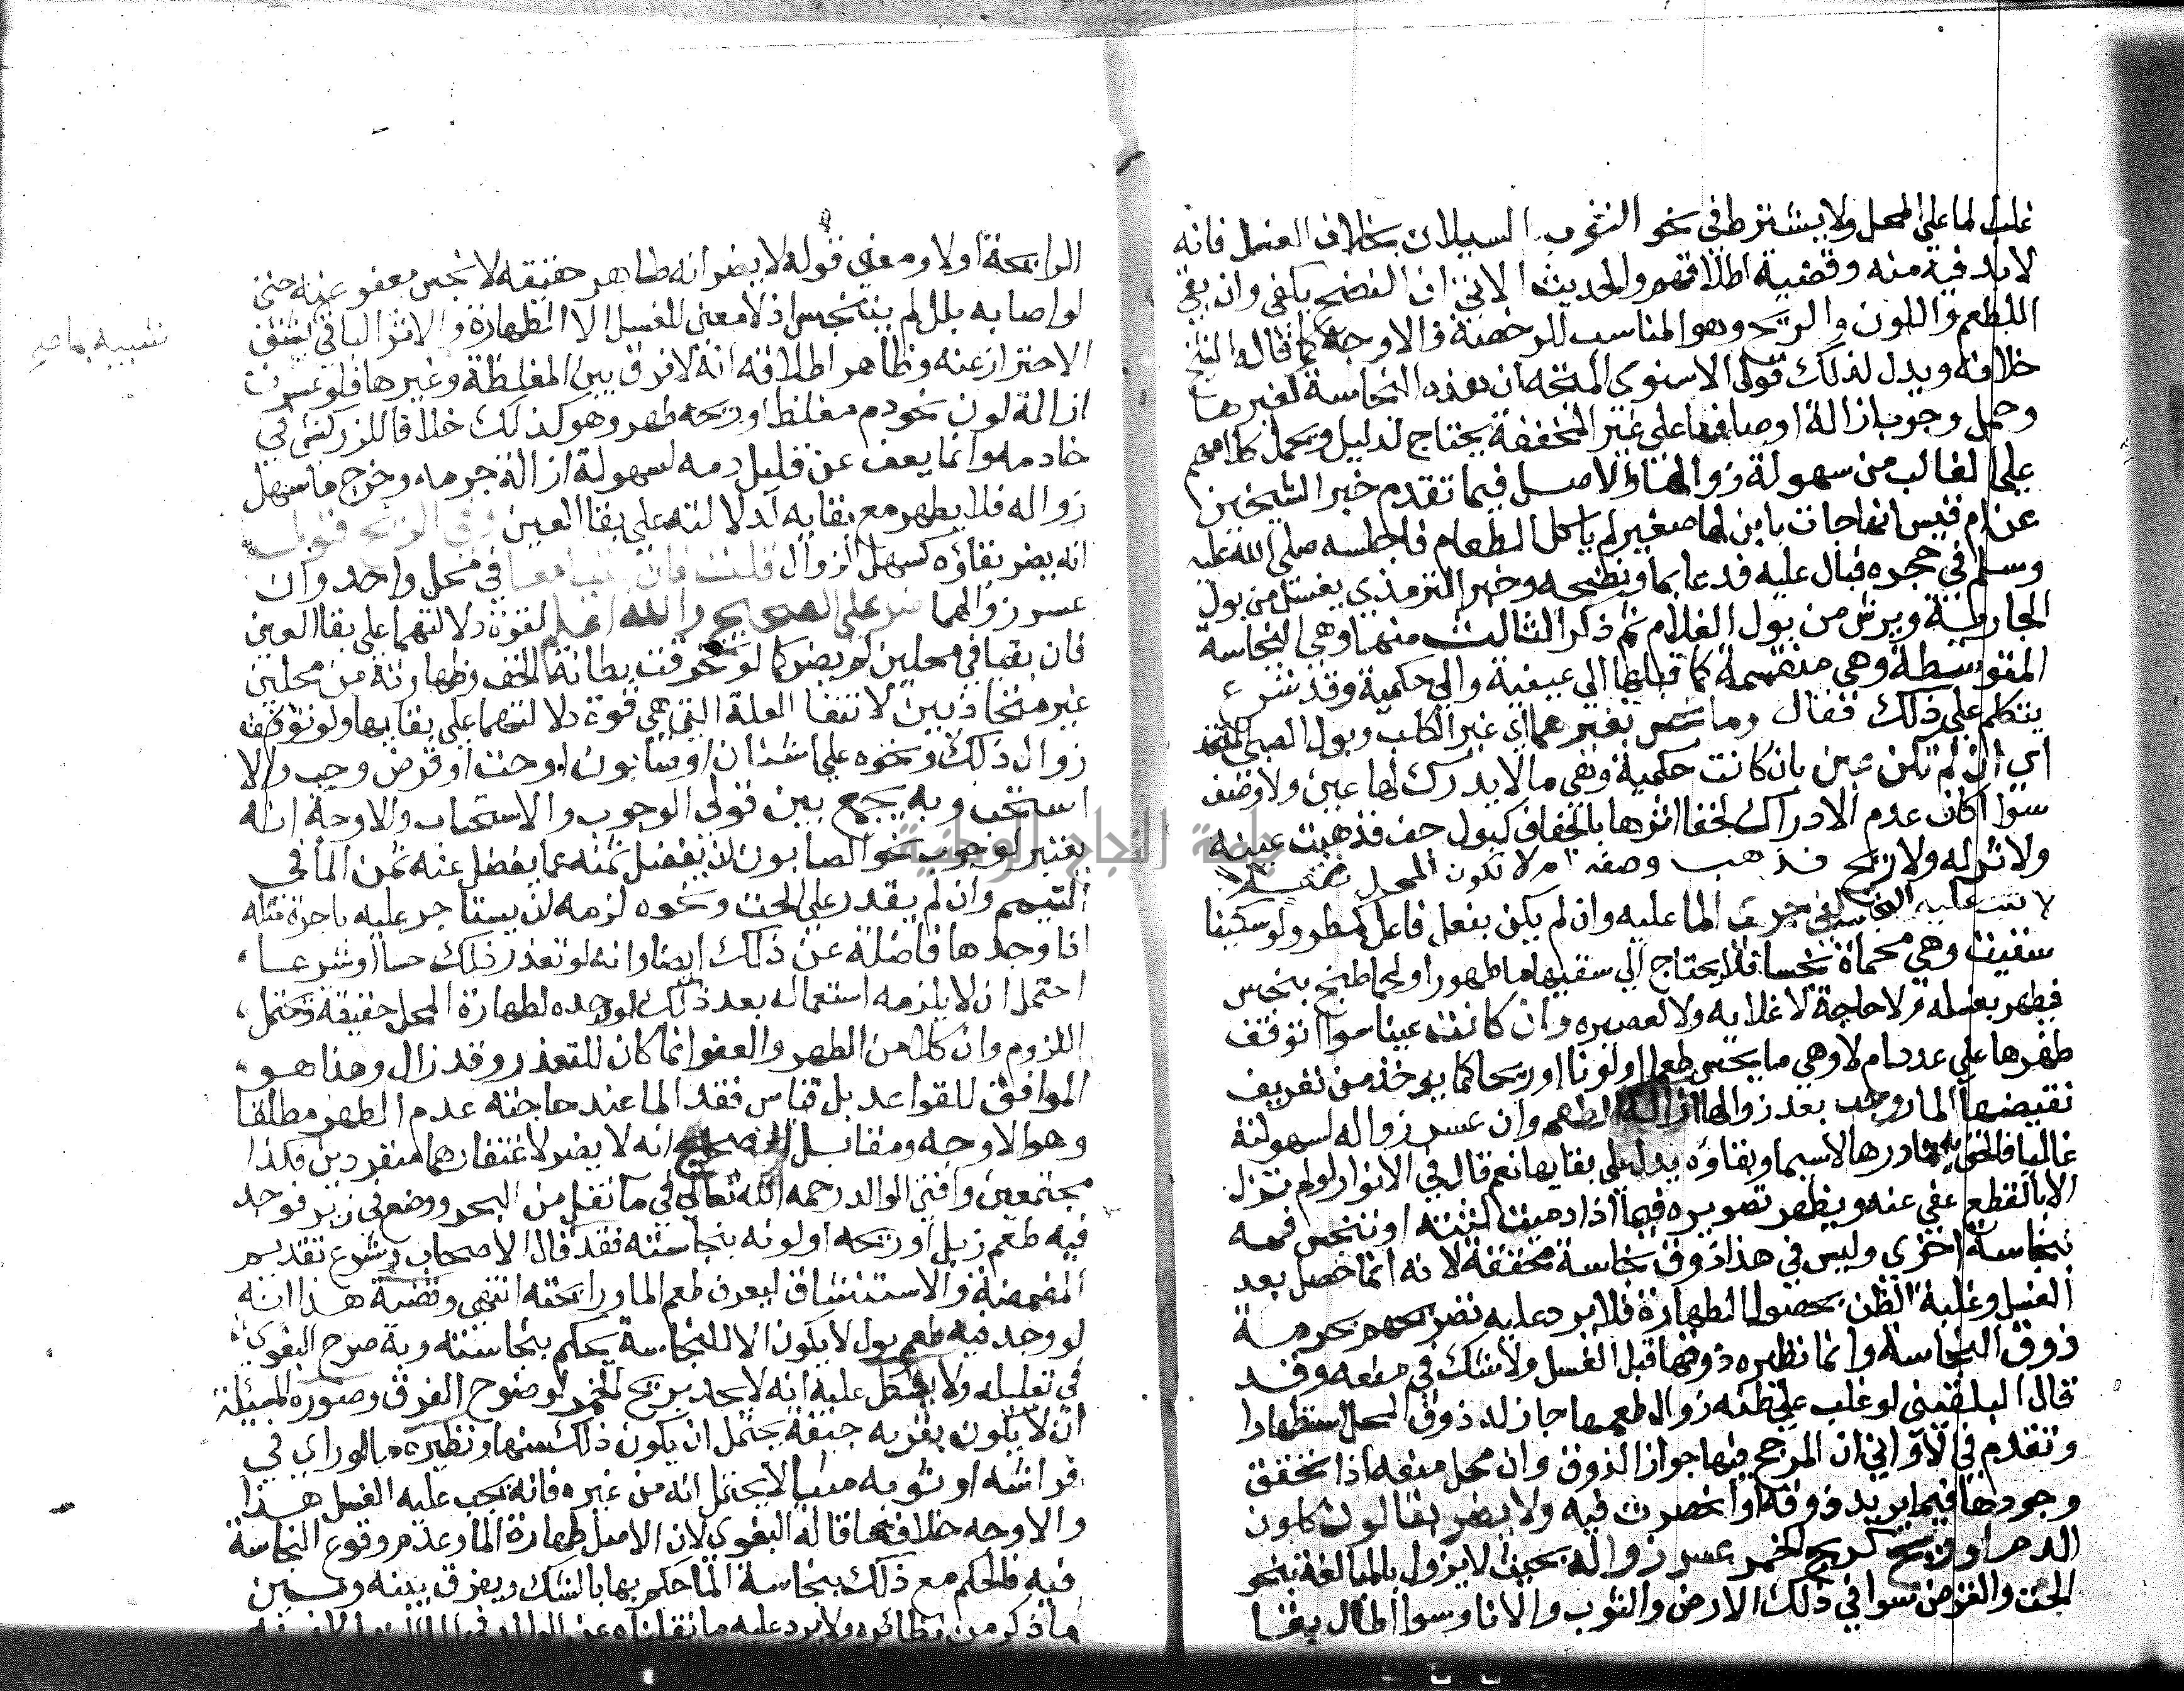 غلب لما على المحل ولا يشترط في نحو الثوب السيلان بخلاف الغسل فانه
لا بد فيه منه وقضية اطلاقهم والحديث الاتي ان النضح يكفي وان بقي
الطعم واللون والريح وهو المناسب للرخصة والاوجه كما قاله الشيخ
خلافه ويدل لذلك قول الاسنوي المتجه ان هذه النجاسة لغيرها
وحمل وجوب ازالة اوصافها على غير المخففة يحتاج لدليل ويحمل كلامهم
على الغالب من سهولة زوالها والاصل فيما تقدم خبر الشيخين
عن ام قيس انها جات بابن لها صغير لم ياكل الطعام فاجلسه صلى الله عليه
وسلم في حجره فبال عليه فدعا بما ونضحه وخبر الترمذي يغسل من بول
الجارية ويرش من بول الغلام ثم ذكر الثالث منها وهي النجاسة
المتوسطة وهي منقسمة كما قبلها الى عينية والى حكمية وقد شرع
يتكلم على ذلك فقال وما نجس بغيرهما اي غير الكلب وبول الصبي المتقدم
اي ان لم تكن عين بان كانت حكمية وهي ما لا يدرك لها عين ولا وصف
سوا اكان عدم الادراك لخفا اثرها بالجفاف كبول جف فذهبت عينه
ولا اثر له ولا ريح فذهب وصفه ام لا تكون المحل
لا تثبت عليه النجاسة كفى جري الما عليه وان لم يكن بفعل فاعل كمطر ولو سكينا
سقيت وهي محماة نجسا فلا يحتاج الى سقيها ما طهورا او لحما طبخ بنجس
فيطهر بغسله ولا حاجة لاغلايه ولا لعصيره وان كانت عينا سوا اتوقف
طهرها على عدد ام لا وهي ما يحس طعما او لونا او ريحا كما يوخذ من تعريف
نقيضها المار وجب بعد زوالها ازالة الطعم وان عسر زواله لسهولته
غالبا فالحق به نادرها لاسيما وبقاؤه يدل على بقايها نعم قال في الانوار لو لم تزل
الا بالقطع عفي عنه ويظهر تصويره فيما اذا دميت لثته او تنجس فمه
بنجاسة اخرى وليس في هذا ذوق نجاسة محققة لانه انما حصل بعد
الغسل وغلبة الظن بحصول الطهارة فلا يرد عليه تصريحهم بحرمة
ذوق النجاسة وانما نظيره ذوقها قبل الغسل ولا شك في منعه وقد
قال البلقيني لو غلب على ظنه زوال طعمها جاز له ذوق المحل استظهارا
وتقدم في الاواني ان المرجح فيها جواز الذوق وان محل منعه اذا تحقق
وجودها فيما يريد ذوقه او انحصرت فيه ولا يضر بقا لون كلون
الدم او ريح كريح الخمر عسر زواله بحيث لا يزول بالمبالغة بنحو
الحت والقرض سوا في ذلك الارض والثوب والانا وسوا اطال بقا
الرايحة اولا ومعنى قوله لا يضر انه طاهر حقيقة لا نجس معفو عنه حتى
لو اصابه بلل لم يتنجس اذ لا معنى للغسل الا الطهارة والاثر الباقي لشق
الاحتراز عنه وظاهر اطلاقه انه لا فرق بين المغلظة وغيرها فلو عسرت
ازالة لون نحو دم مغلظ او ريحه طهر وهو كذلك خلافا للزركشي في
خادمه وانما يعف عن قليل دمه لسهولة ازالة جرمه وخرج ما سهل
زواله فلا يطهر مع بقايه لدلالته على بقا العين وفي الريح قول
انه يضر بقاؤه كسهل الزوال قلت فان بقيا معا في محل واحد وان
عسر زوالهما ضر على الصحيح والله اعلم لقوة دلالتهما على بقا العين
فان بقيا في محلين لم يضر كما لو تخرقت بطانة الخف وظهارته من محلين
غير متحاذيين لانتفا العلة التي هي قوة دلالتهما على بقايها ولو توقف
زوال ذلك ونحوه على اشنان او صابون او حت او قرض وجب والا
استحب وبه يجمع بين قولي الوجوب والاستحباب والاوجه انه
يعتبر لوجوب نحو الصابون ان يفضل ثمنه عما يفضل عنه ثمن الما في
التيمم وان لم يقدر على الحت ونحوه لزمه ان يستاجر عليه باجرة مثله
اذا وجدها فاضلة عن ذلك ايضا وانه لو تعذر ذلك حسا او شرعا
احتمل ان لا يلزمه استعماله بعد ذلك لو وجده لطهارة المحل حقيقة ويحتمل
اللزوم وان كلا من الطهر والعفو انما كان للتعذر وقد زال وهذا هو
الموافق للقواعد بل قياس فقد الما عند حاجته عدم الطهر مطلقا
وهو الاوجه ومقابل الصحيح انه لا يضر لاغتفارهما منفردين فكذا
مجتمعين وافتى الوالد رحمه الله تعالى في ما نقل من البحر ووضع في زير فوجد
فيه طعم زبل او ريحه او لونه بنجاسته فقد قال الاصحاب وشرع تقديم
المضمضة والاستنشاق ليعرف طعم الما ورايحته انتهى وقضية هذا انه
لو وجد فيه طعم بول لا يكون الا للنجاسة يحكم بنجاسته وبه صرح البغوي
في تعليله ولا يشكل عليه انه لا يحد بريح الخمر لوضوح الفرق وصورة المسئلة
ان لا يكون بقربه جيفة يحتمل ان يكون ذلك منها ونظيره ما لو راى في
فراشه او ثوبه منيا لا يحتمل انه من غيره فانه يجب عليه الغسل هذا
والاوجه خلاف ما قاله البغوي لان الاصل طهارة الما وعدم وقوع النجاسة
فيه فالحكم مع ذلك بنجاسة الما حكم بها بالشك ويفرق بينه وبين
ما ذكر من نظائره ولا يرد عليه ما نقلناه عن الوالد